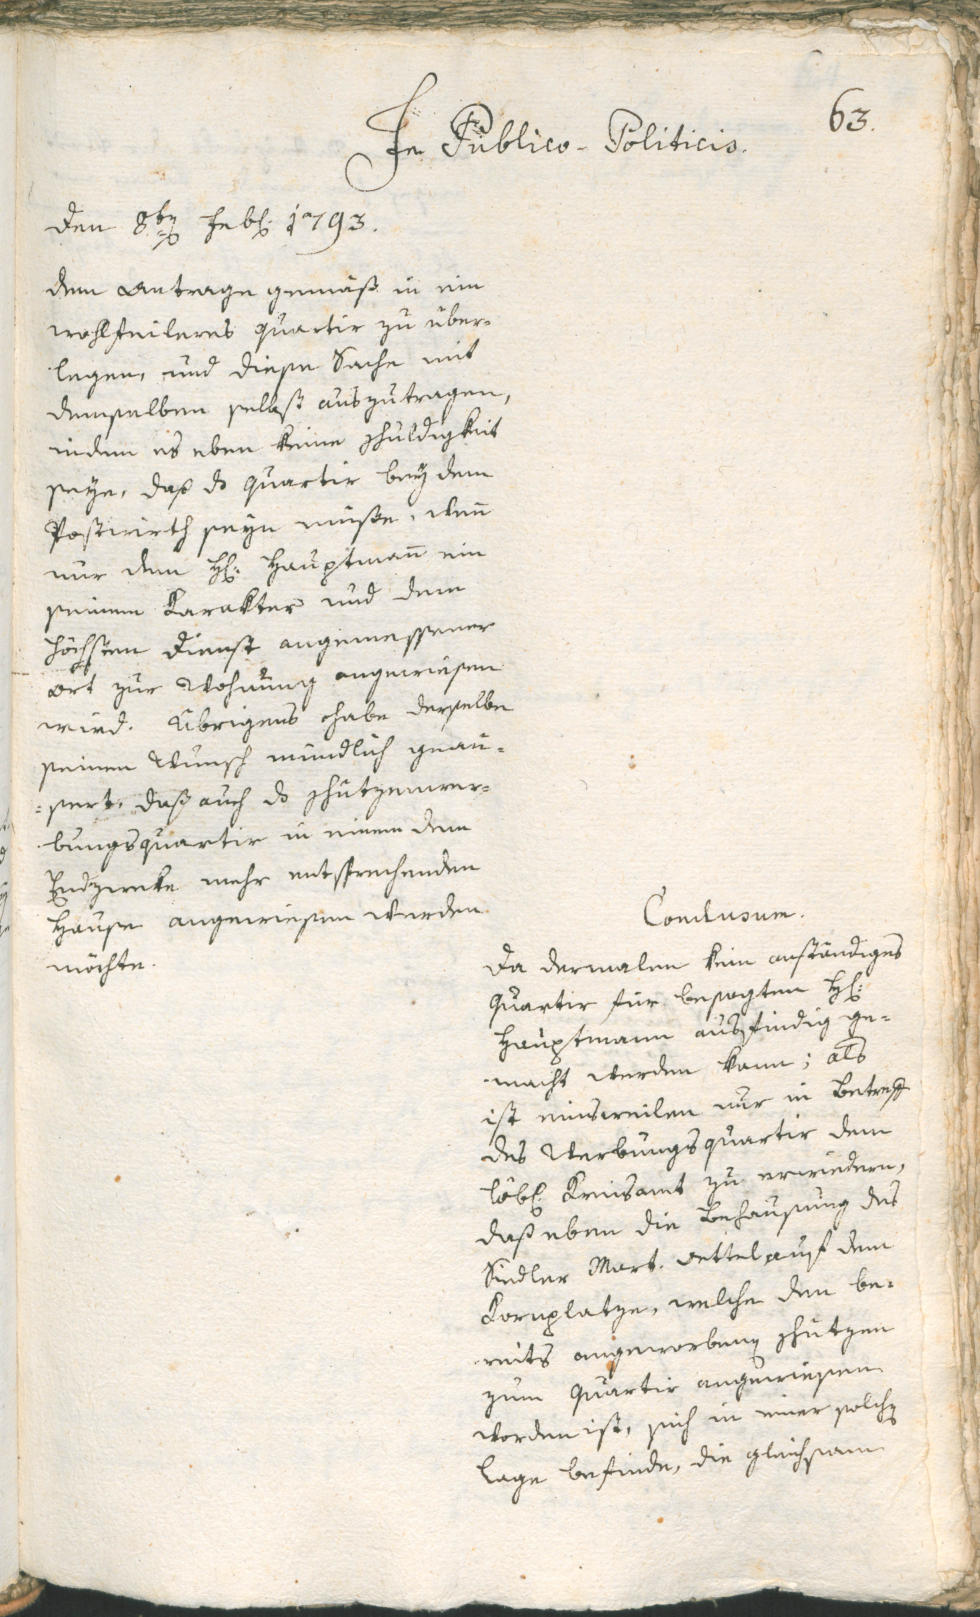 63.
In Publico-Politicis.
den 8ten Febr: 1793.
dem Antrage gemäß in ein
wohlfeileres Quartir zu über-
legen, und diese Sache mit
demselben selbst auszutragen,
indem es eben keine Schuldigkeit
seye, daß ds Quartir bey dem
Postwirth seyn müße, wenn
nur dem H: Hauptmann ein
seinem Karakter und dem
höchsten Dienst angemessener
Ort zur Wohnung angewiesen
wird. Übrigens habe derselbe
seinen Wunsch mündlich geäu-
=sert, daß auch ds Schützenwer-
bungsquartir in einem dem
Endzwecke mehr entsprechenden
Hause angewiesen werden
möchte.
Conclusum.
Da dermalen kein anständiges
Quartir für besagten H:
Hauptmann ausfindig ge-
macht werden kann; als
ist einsweilen nur in Betreff
des Werbungsquartir dem
löbl: Kreisamt zu erwiedern,
daß eben die Behausung des
Siedler Mart. Oettel auf dem
Kornplatze, welche den be-
reits angeworbenen Schützen
zum Quartir angewiesen
worden ist, sich in einer solchen
Lage befinde, die gleichsam